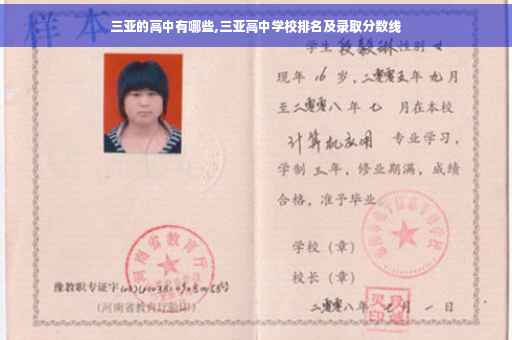 三亚的高中有哪些,三亚高中学校排名及录取分数线
样本
学生 段毅琳 性别 女
现年 16 岁,二零零五年 九月
至二零零八年 七 月在本校
计算机应用 专业学习,
学制 三 年,修业期满,成绩
合格,准予毕业
学校(章)
校长(章)
二零零八年 七 月 一 日
河南省教育厅
豫教职专证字
(河南省教育厅验印)